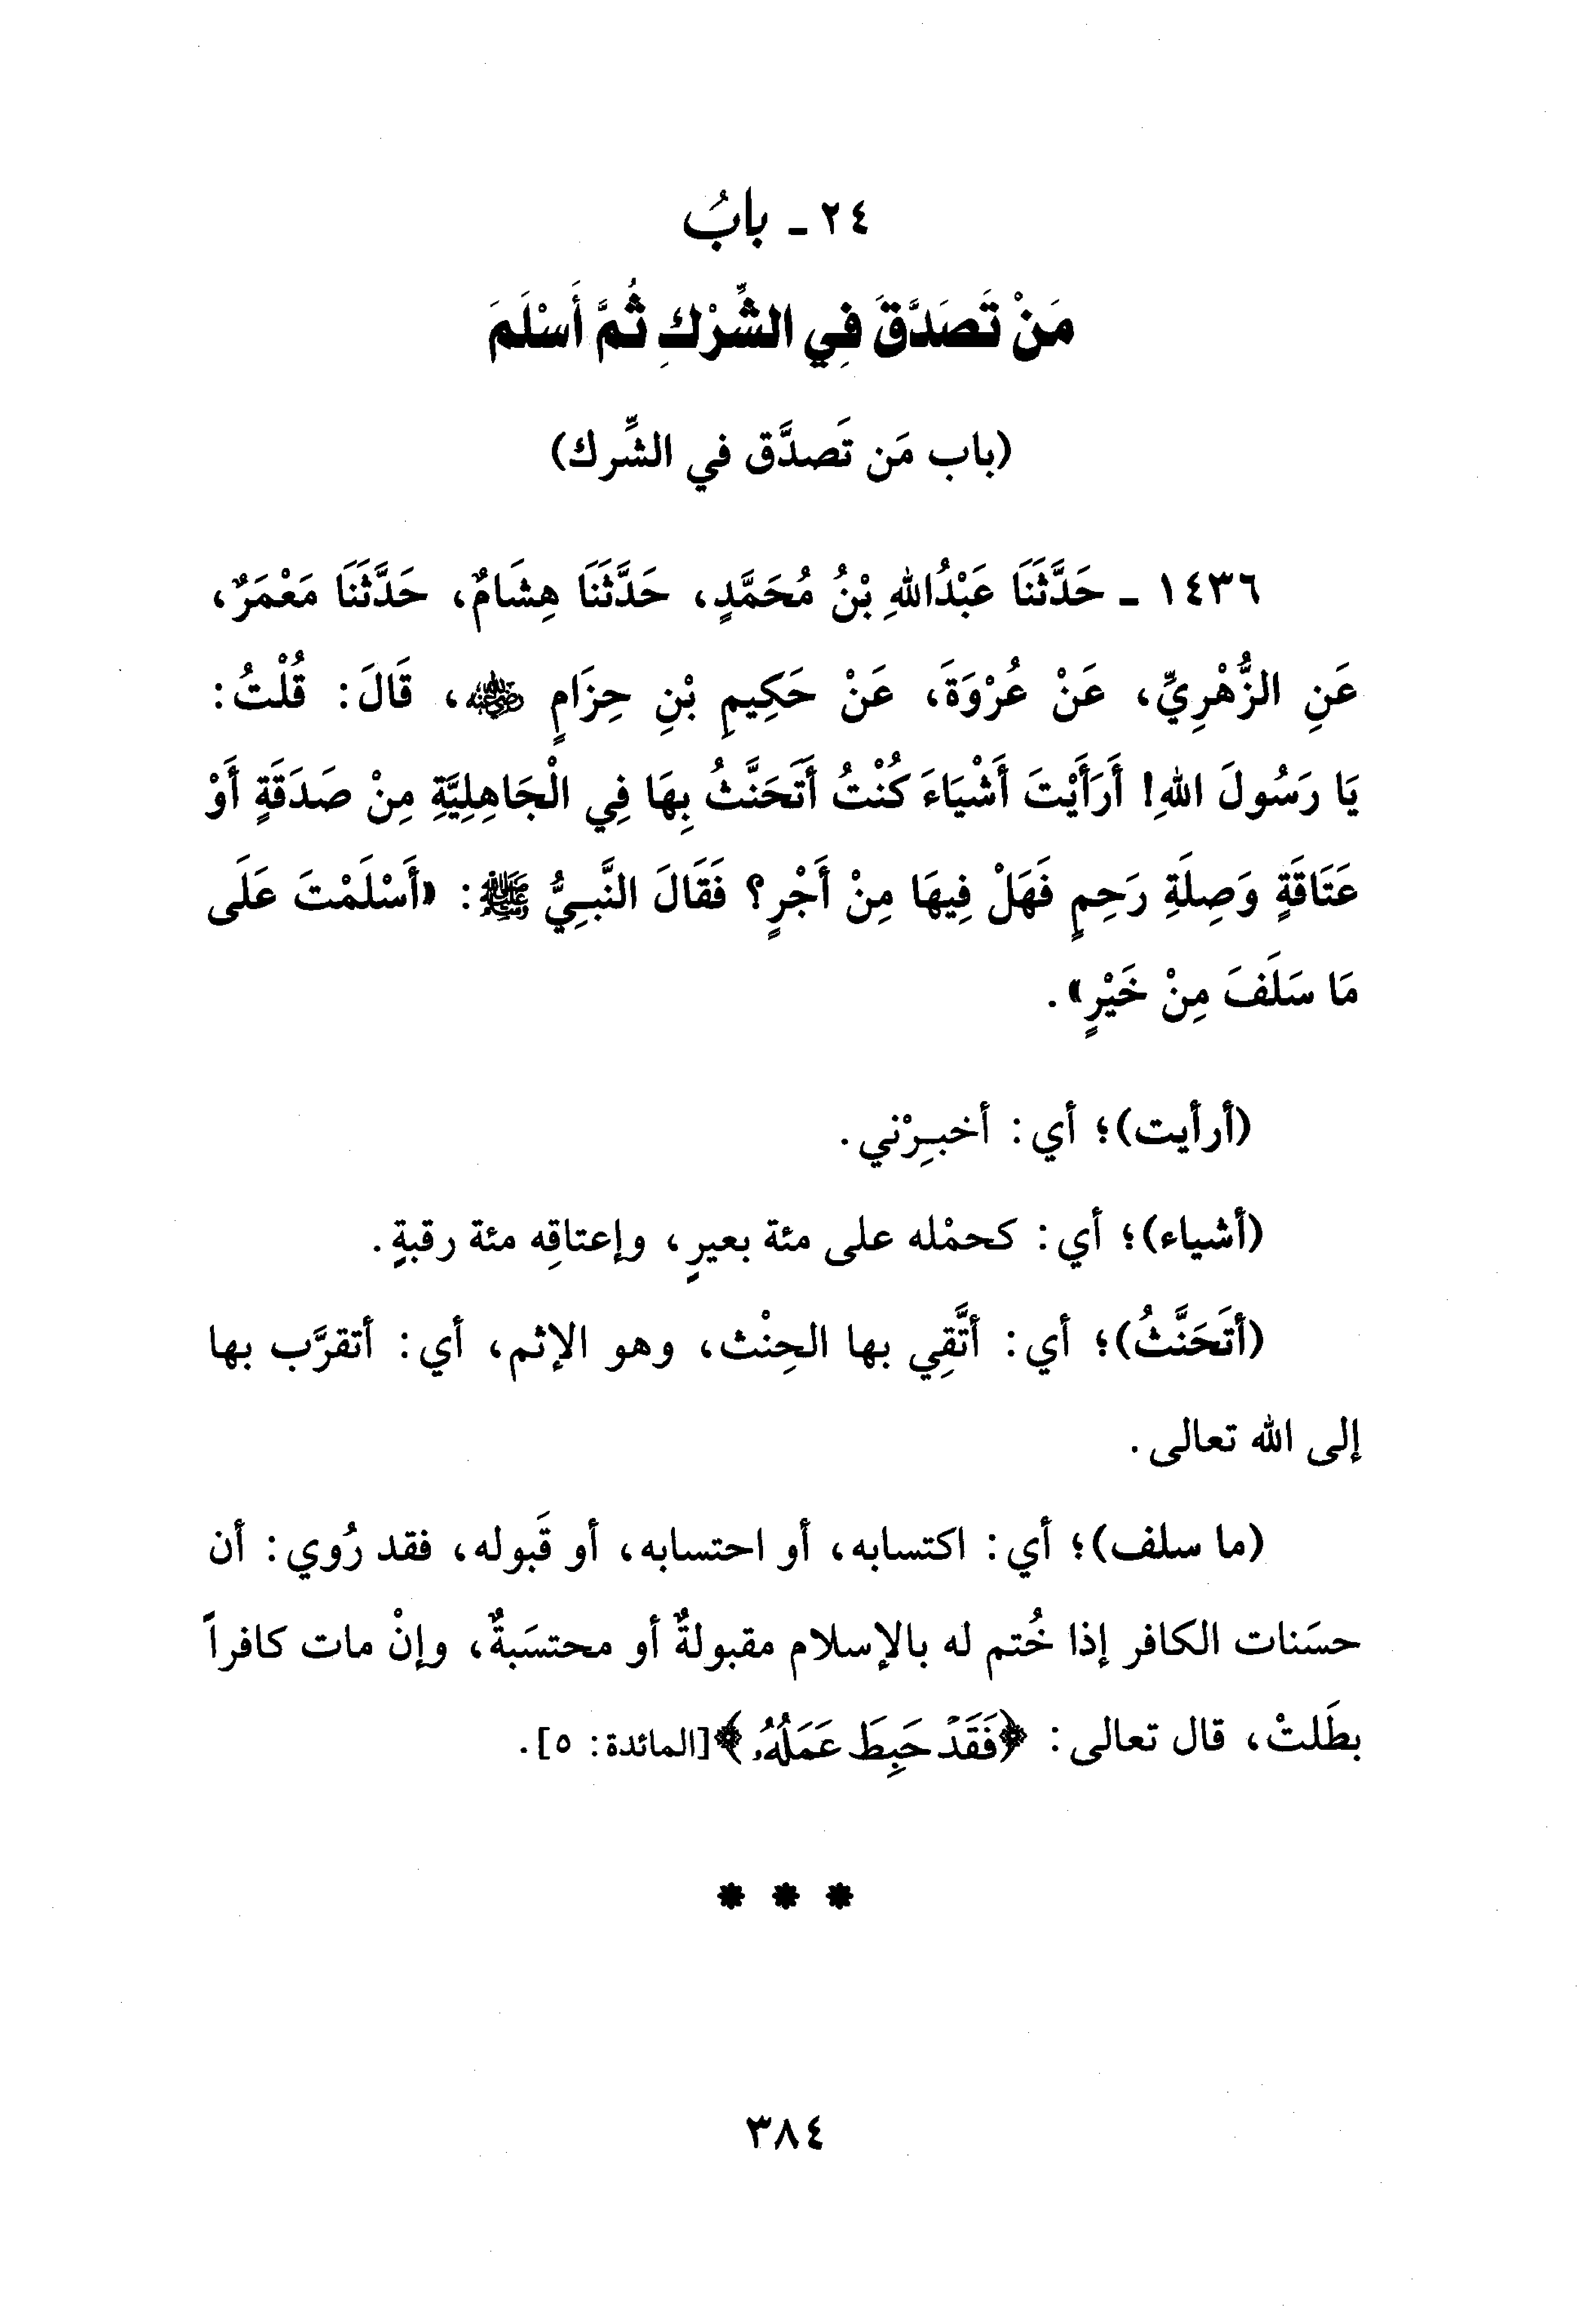 ٢٤ - بابُ
مَنْ تَصَدَّقَ فِي الشِّرْكِ ثُمَّ أَسْلَمَ
(باب مَن تَصدَّق في الشِّرك)
١٤٣٦ - حَدَّثَنَا عَبْدُاللهِ بْنُ مُحَمَّدٍ، حَدَّثَنَا هِشَامٌ، حَدَّثَنَا مَعْمَرٌ،
عَنِ الزُّهْرِيِّ، عَنْ عُرْوَةَ، عَنْ حَكِيمِ بْنِ حِزَامٍ رضي الله عنه، قَالَ: قُلْتُ:
يَا رَسُولَ اللهِ! أَرَأَيْتَ أَشْيَاءَ كُنْتُ أَتَحَنَّثُ بِهَا فِي الْجَاهِلِيَّةِ مِنْ صَدَقَةٍ أَوْ
عَتَاقَةٍ وَصِلَةِ رَحِمٍ فَهَلْ فِيهَا مِنْ أَجْرٍ؟ فَقَالَ النَّبِيُّ ﷺ: «أَسْلَمْتَ عَلَى
مَا سَلَفَ مِنْ خَيْرٍ».
(أرأيت)؛ أي: أخبِرْني.
(أشياء)؛ أي: كحمْله على مئة بعيرٍ، وإعتاقِه مئة رقبةٍ.
(أتَحَنَّثُ)؛ أي: أتَّقِي بها الحِنْث، وهو الإثم، أي: أتقرَّب بها
إلى الله تعالى.
(ما سلف)؛ أي: اكتسابه، أو احتسابه، أو قَبوله، فقد رُوي: أن
حسَنات الكافر إذا خُتم له بالإسلام مقبولةٌ أو محتسَبةٌ، وإنْ مات كافراً
بطَلتْ، قال تعالى: ﴿فَقَدْ حَبِطَ عَمَلُهُۥ﴾[المائدة: ٥].
* * *
٣٨٤